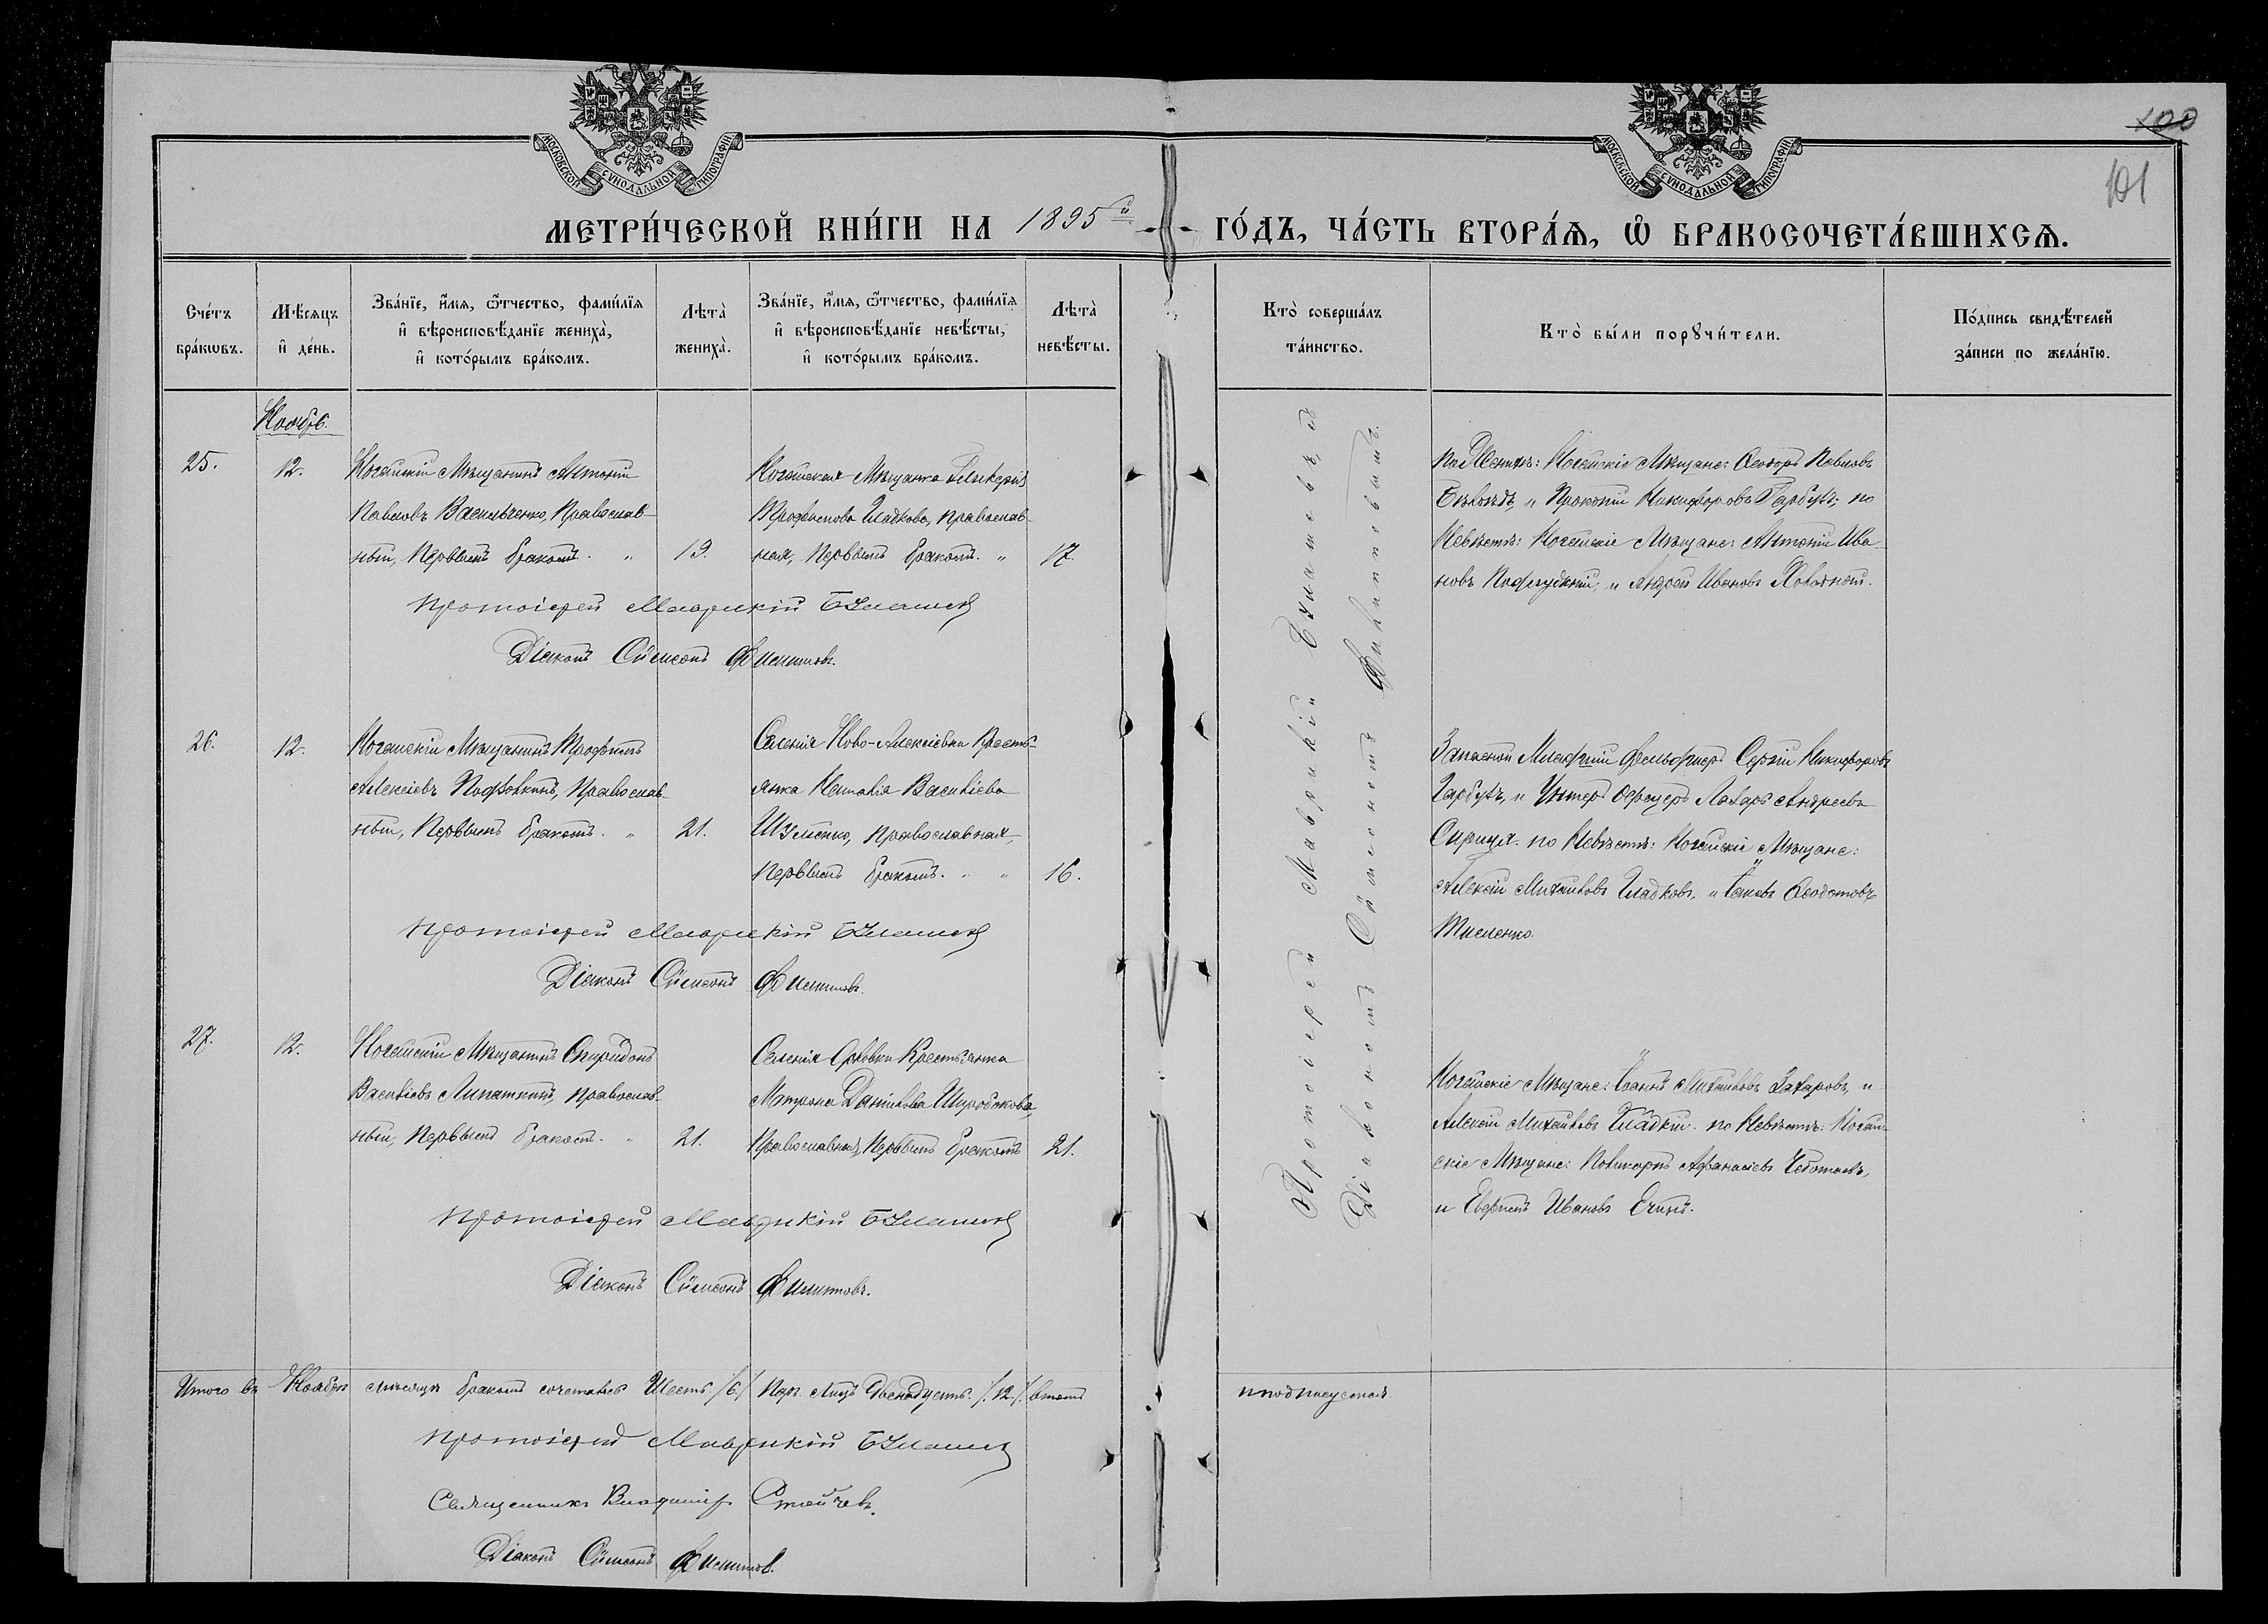 МОСКОВСКОЙ СѴНОДАЛЬНОЙ ТИПОГРАФІИ
МОСКОВСКОЙ СѴНОДАЛЬНОЙ ТИПОГРАФІИ
100
101
МЕТРИ́ЧЕСКОЙ КНИ́ГИ НА 1895й ГО́ДЪ, ЧА́СТЬ ВТОРА́Ѧ, Ѡ҆ БРАКОСОЧЕТА́ВШИХСѦ.
Сче́тъ
бра́кѡвъ.
Мѣ́сѧцъ
и҆ де́нь.
Зва́нїе, и҆́мѧ, ѻ҆́тчество, фами́лїѧ
и҆ вѣроисповѣ́данїе жениха̀,
и҆ кото́рымъ бра́комъ.
Лѣта̀
жениха̀.
Зва́нїе, и҆́мѧ, ѻ҆́тчество, фами́лїѧ
и҆ вѣроисповѣ́данїе невѣ́сты,
и҆ кото́рымъ бра́комъ.
Лѣта̀
невѣ́сты.
Кто̀ соверша́лъ
та́инство.
Кто̀ бы́ли порꙋчи́тели.
По́дпись свидѣ́телей
за́писи по жела́нїю.
Ноябрь.
25.
12.
Ногайскій Мѣщанинъ Антоній
Павловъ Васильченко, Православ-
ный, Первымъ бракомъ. "
19.
Ногайская Мѣщанка Гликерія
Трофимова Гладкова, Православ-
ная, Первымъ бракомъ. "
17.
По Женихѣ: Ногайскіе Мѣщане: Ѳеодоръ Павловъ
и Прокопій Никифоровъ Гарбузъ; по
Невѣстѣ: Ногайскіе Мѣщане: Антоній Ива-
новъ и Андрей Ивановъ
Протоіерей Маврикій
Діаконъ Сѷмеонъ Филипповъ.
26.
12.
Ногайскій Мѣщанинъ Трофимъ
Алексіевъ Православ-
ный, Первымъ бракомъ. "
21.
Селенія Ново-Алексіевки Кресть-
янка Наталія Василіева
Шульженко, Православная,
Первымъ бракомъ. " "
16.
Запасной Младшій Фельдшеръ Сергій Никифоровъ
Гарбузъ, и Унтеръ Офицеръ Лазарь Андреевъ
по Невѣстѣ: Ногайскіе Мѣщане:
Алексій Михаиловъ Гладковъ, и Іаковъ Ѳеодотовъ
Протоіерей Маврикій
Діаконъ Сѷмеонъ Филипповъ.
27.
12.
Ногайскій Мѣщанинъ Спиридонъ
Василіевъ Липаткинъ, Православ-
ный, Первымъ бракомъ. "
21.
Селенія Орловки Крестьянка
Матрона Даніилова Широбокова,
Православная, Первымъ бракомъ
21.
Ногайскіе Мѣщане: Іоаннъ Михаиловъ Захаровъ, и
Алексій Михаиловъ Гладкій. по Невѣстѣ: Ногай-
скіе Мѣщане: Поликарпъ Афанасіевъ
и Евфимъ Ивановъ
Протоіерей Маврикій
Діаконъ Сѷмеонъ Филипповъ.
Протоіерей Маврикій
Діаконъ Сѷмеонъ Филипповъ.
Итого въ Ноябрѣ мѣсяцѣ бракомъ сочетались Шесть /6/ Паръ. Лицъ Двенадцать. /.12./ въ томъ
и подписуемся.
Протоіерей Маврикій
Священникъ Владиміръ Стойчевъ.
Діаконъ Сѷмеонъ Филипповъ.